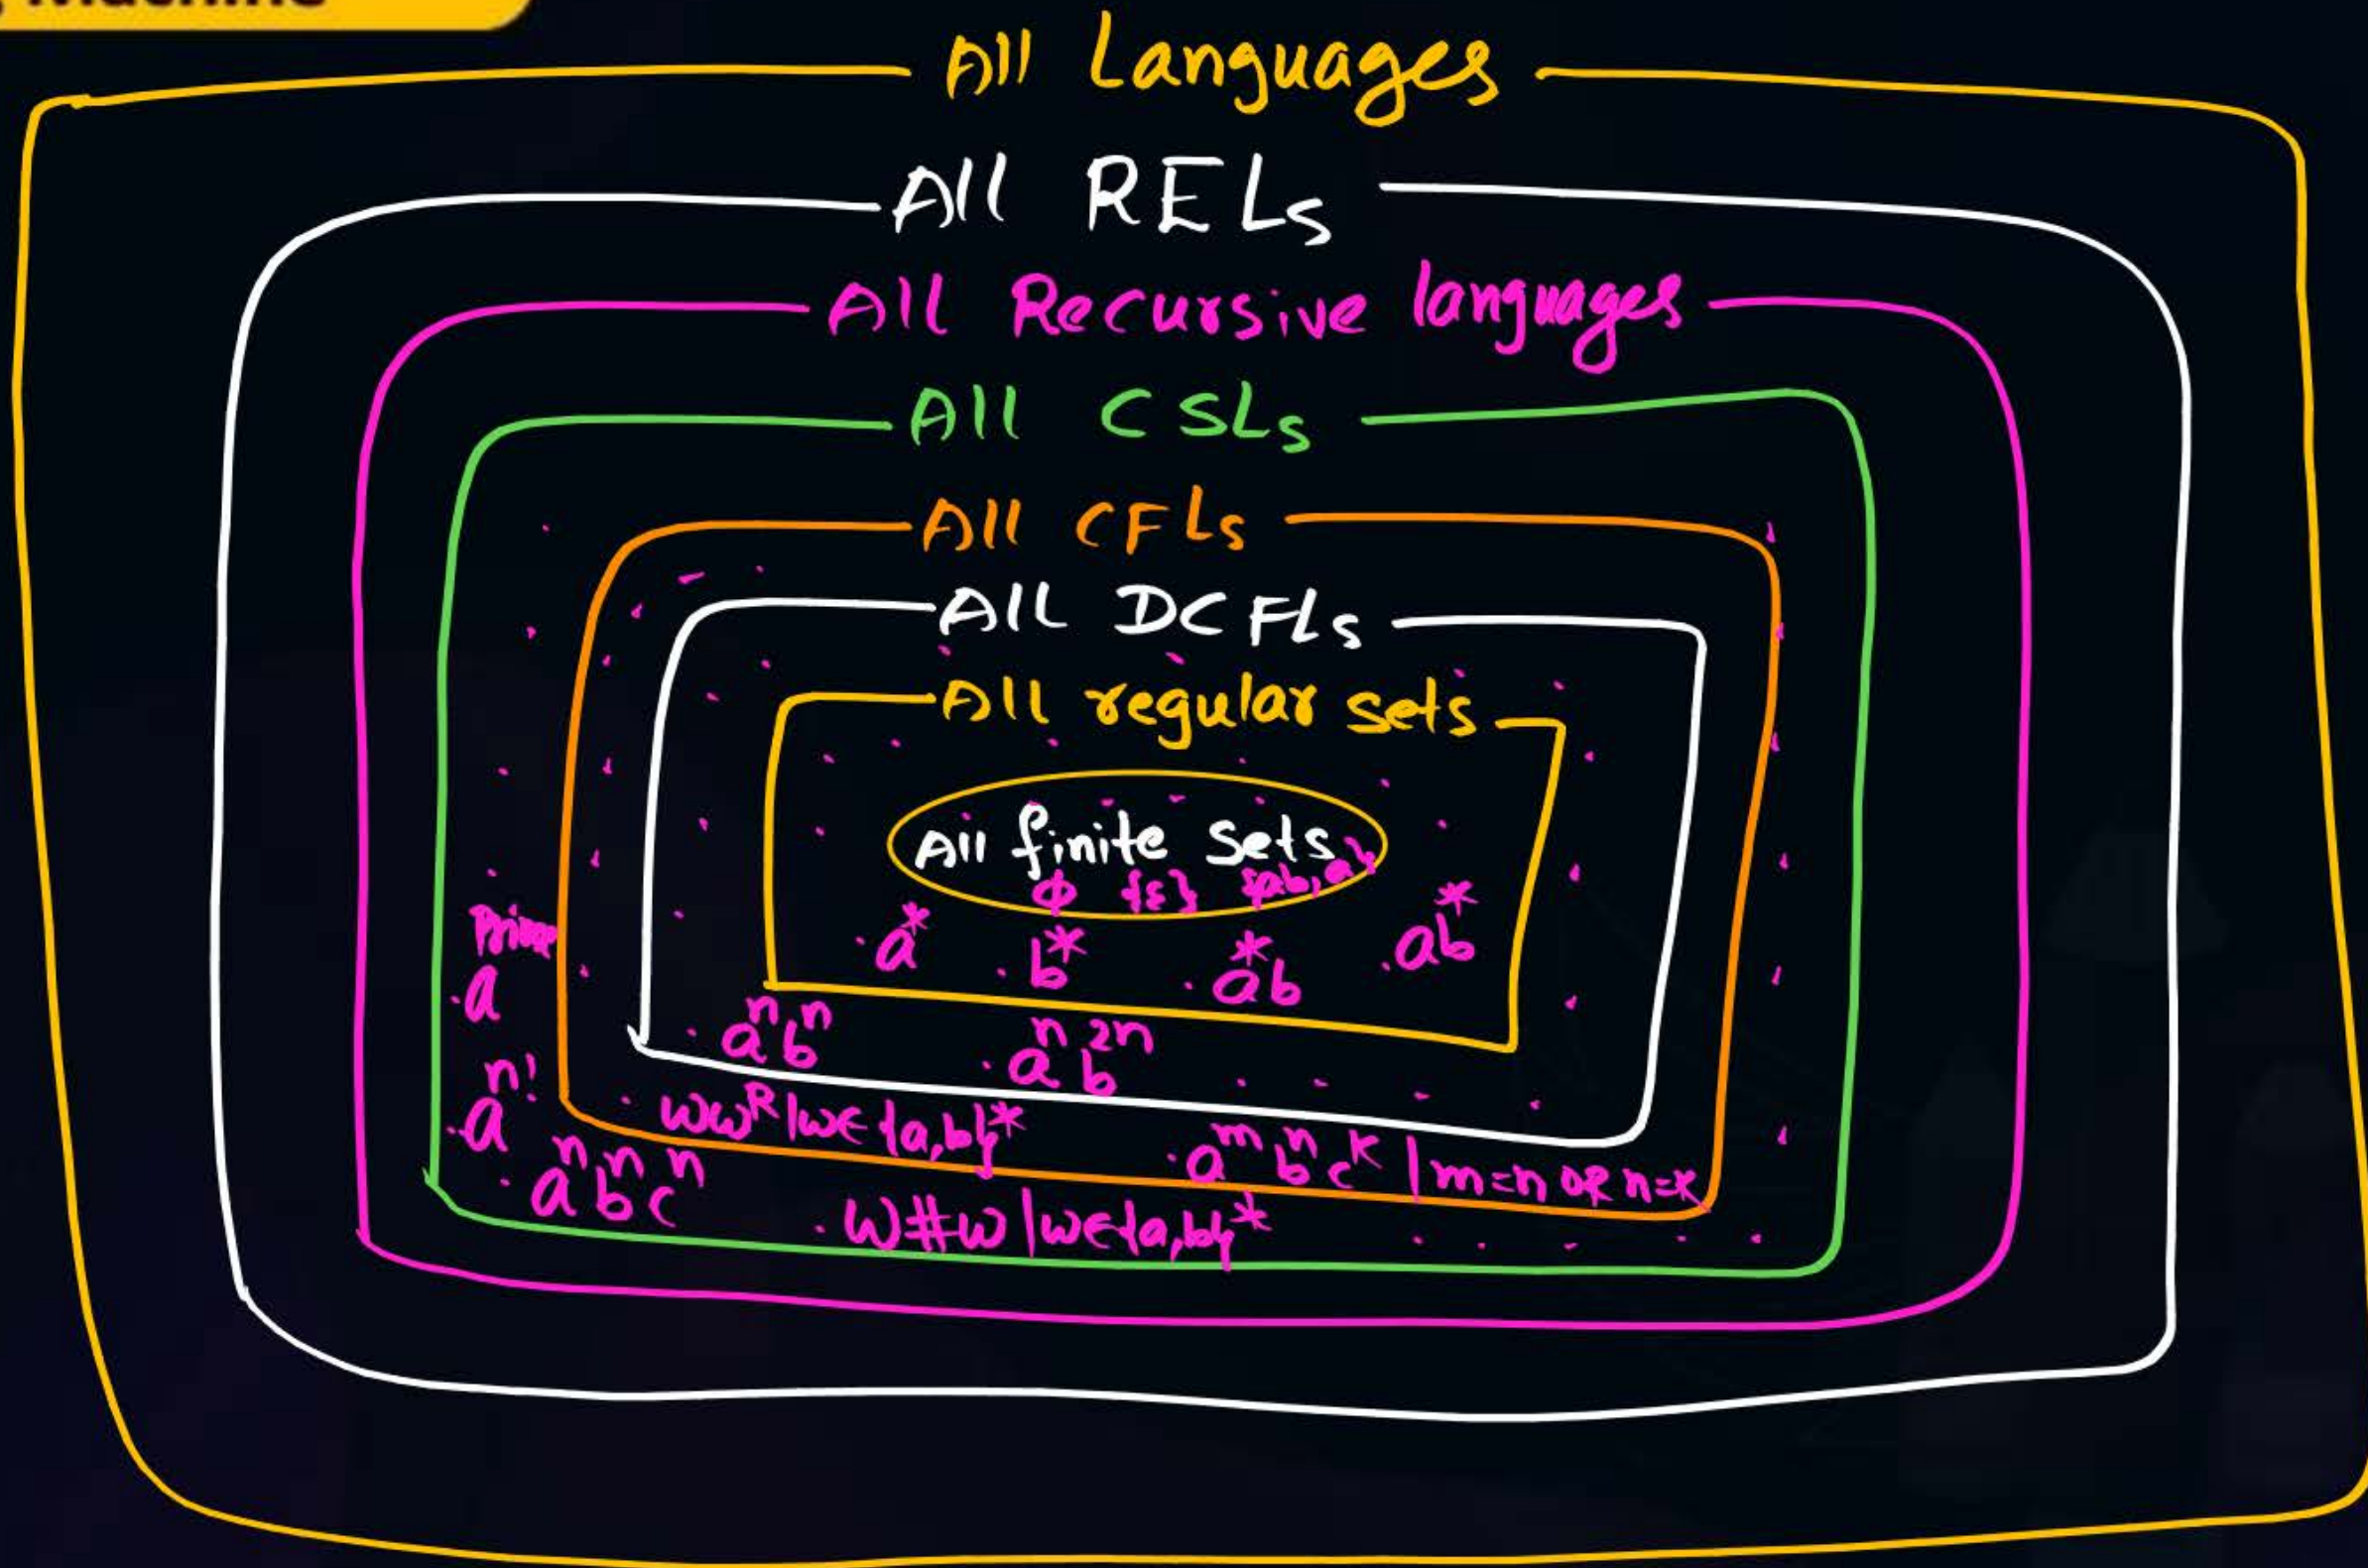 Machine
All Languages
All RELs
All Recursive languages
All CSLs
All CFLs
All DCFLs
All regular sets
All finite sets
ϕ {ε} {ab, a}
.a* .b* .a*b .ab*
.aᵖʳⁱᵐᵉ
.aⁿbⁿ .aⁿb²ⁿ
.aⁿ!
.wwᴿ|w∈{a,b}* .aᵐbⁿcᵏ | m=n OR n=k
.aⁿbⁿcⁿ .w#w|w∈{a,b}*